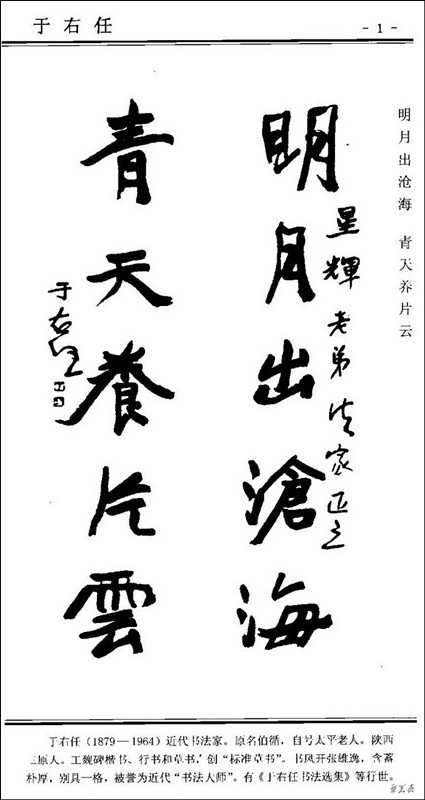 于右任
- 1 -
明月出沧海 青天养片云
明月出滄海
星輝老弟法家正之
青天養片雲
于右任
于右任(1879—1964)近代书法家。原名伯循，自号太平老人。陕西
三原人。工魏碑楷书、行书和草书，创“标准草书”。书风开张雄逸，含蓄
朴厚，别具一格，被誉为近代“书法大师”。有《于右任书法选集》等行世。